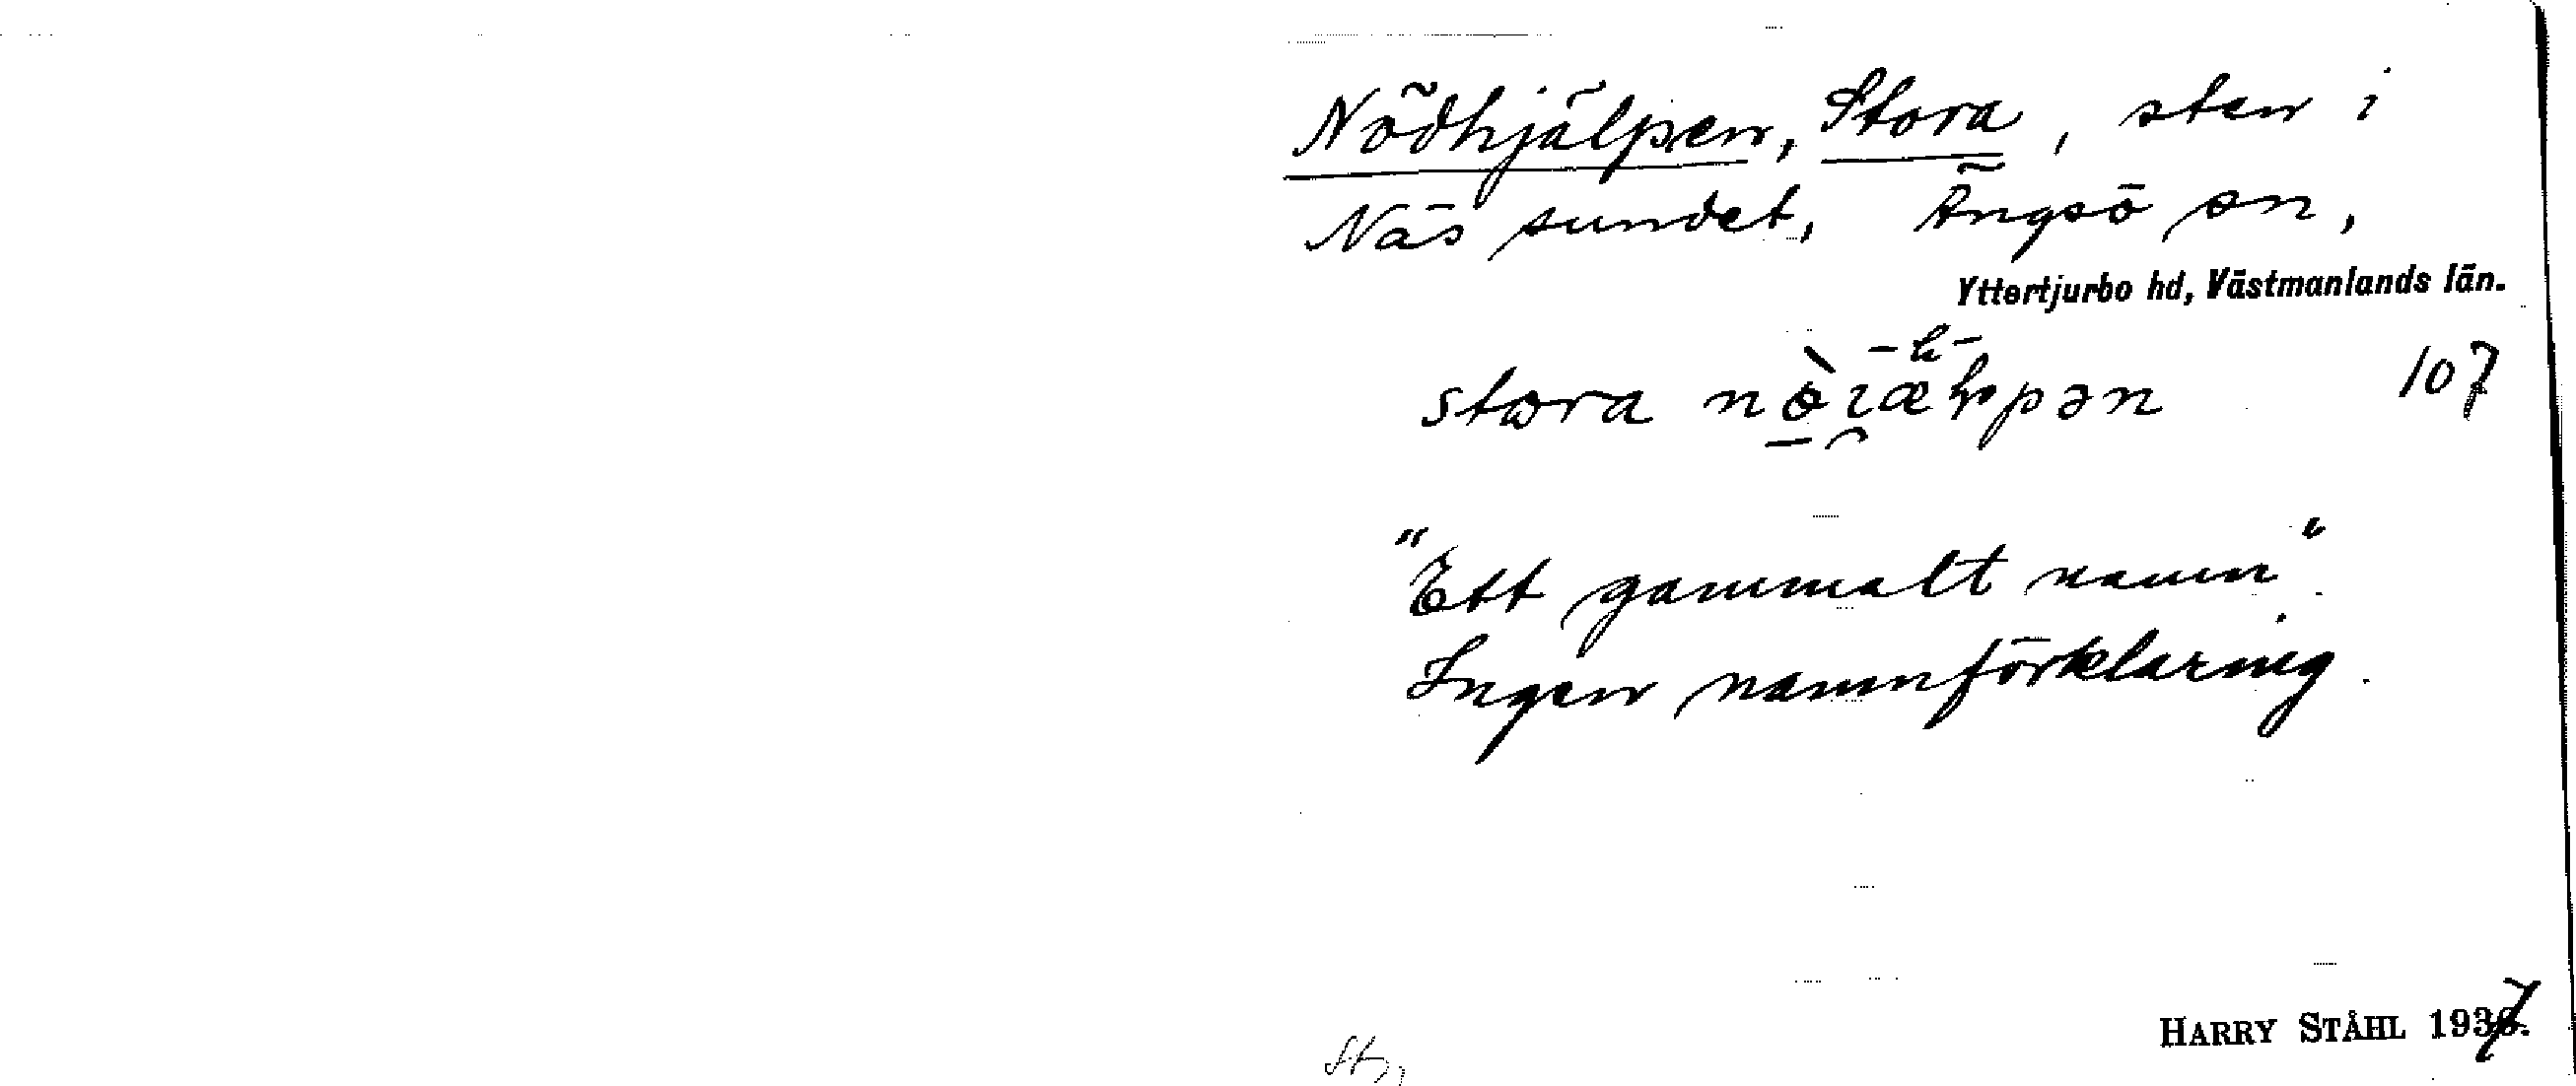 Nödhjälpen, Stora, sten i
Näs sundet, Ängsö sn,
Yttertjurbo hd, Västmanlands län.
stora
107
"Ett gammalt namn".
Ingen namnförklaring.
HARRY STÅHL 1937.